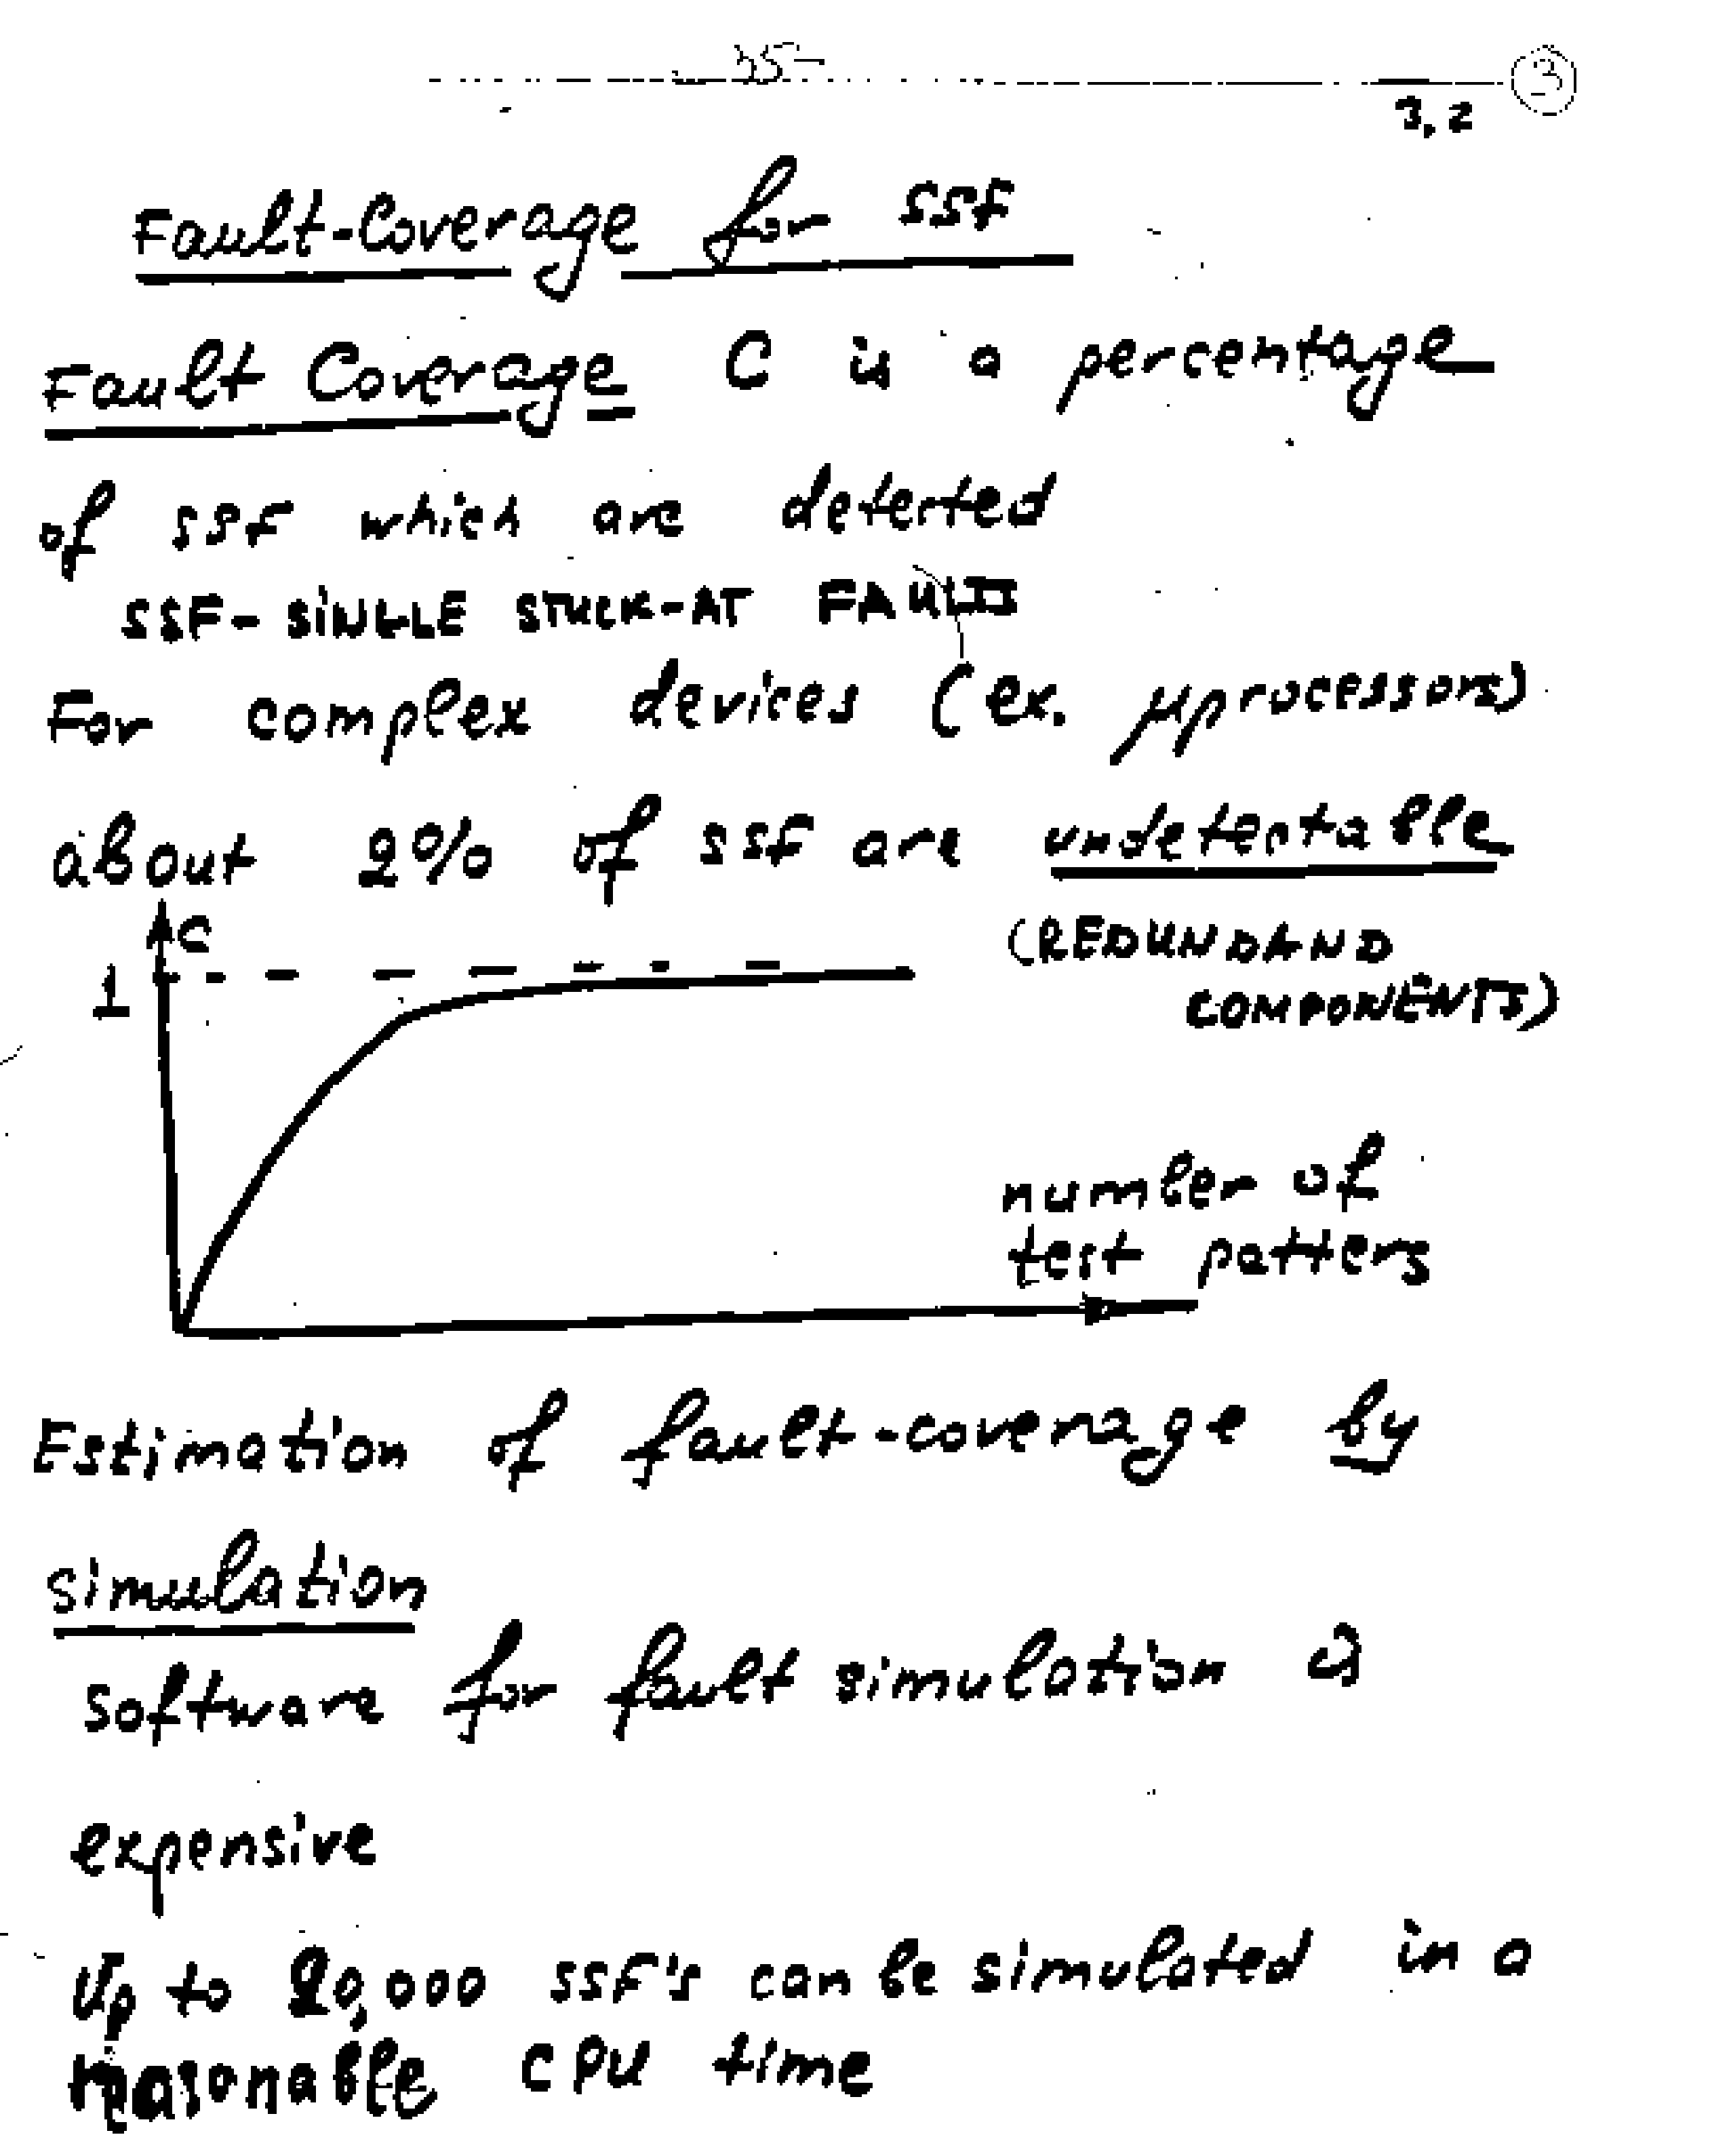 35-
3
3.2
Fault-Coverage for SSF
Fault Coverage C is a percentage
of SSF which are detected
SSF - SINGLE STUCK-AT FAULTS
For complex devices (ex. μprocessors)
about 2% of SSF are undetectable
(REDUNDAND
COMPONENTS)
C
1
number of
test patters
Estimation of fault-coverage by
simulation
Software for fault simulation is
expensive
Up to 20,000 SSF's can be simulated in a
reasonable CPU time